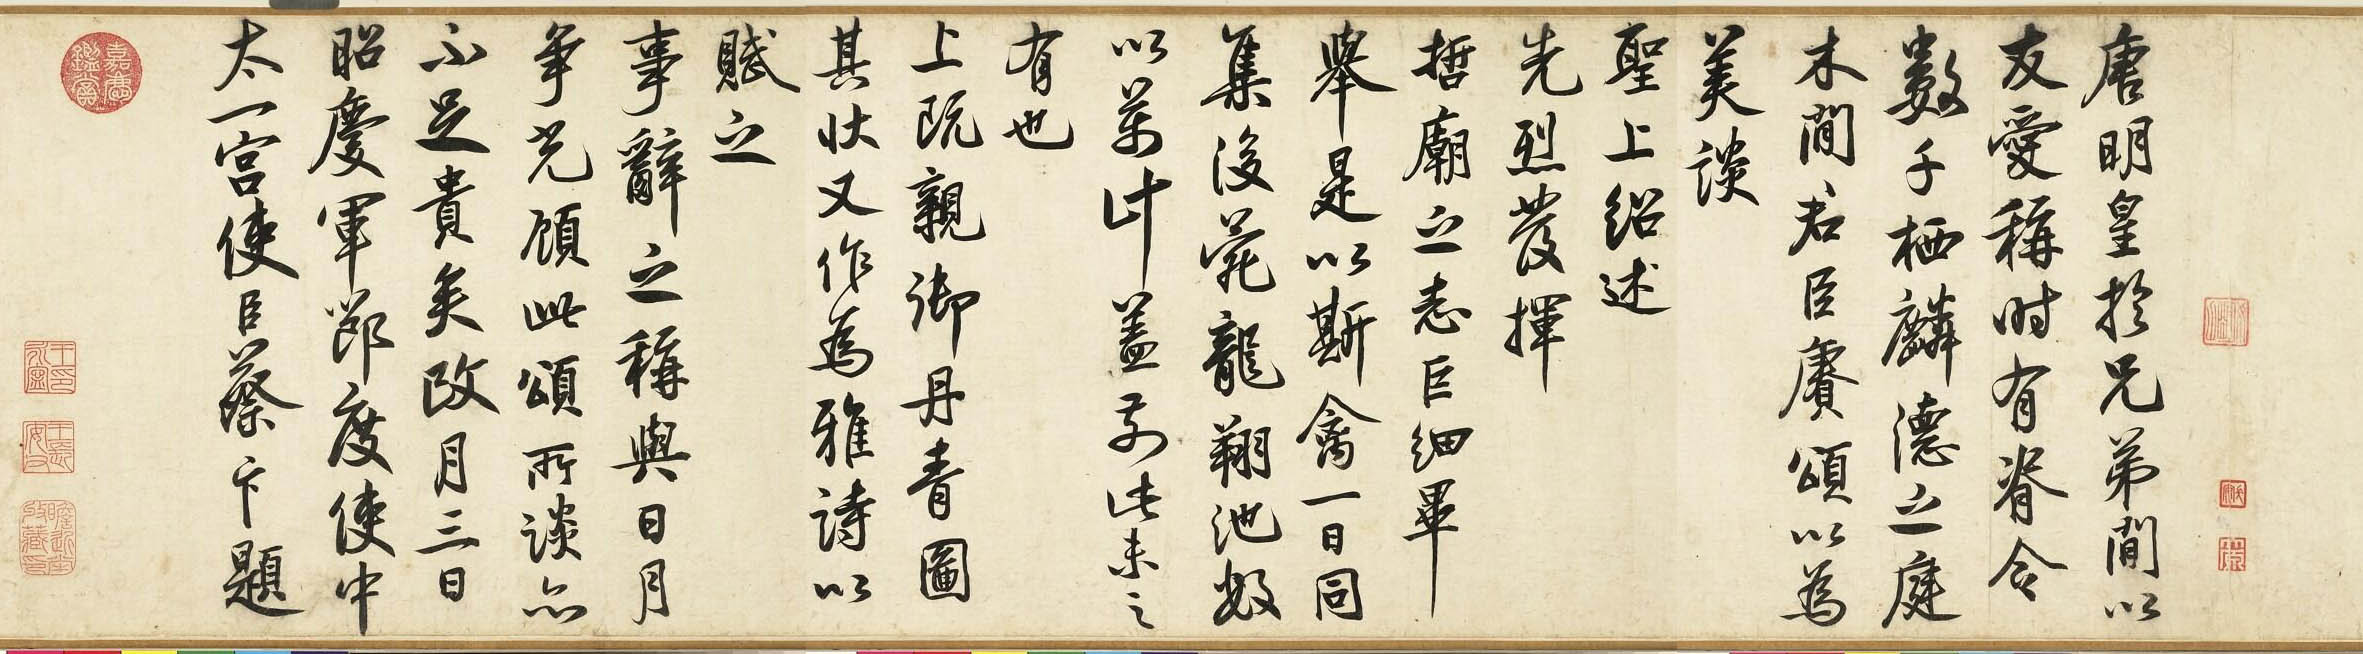 唐明皇於兄弟間以
友愛稱時有脊令
數千栖麟德之庭
木間君臣賡頌以為
美談
聖上紹述
先烈發揮
哲廟之志巨細畢
舉是以斯禽一日同
集後苑龍翔池數
以萬計蓋前此未之
有也
上既親御丹青圖
其狀又作為雅詩以
賦之
事辭之稱與日月
爭光顧此頌所談亦
不足貴矣政月三日
昭慶軍節度使中
太一宮使臣蔡卞題
嘉慶鑑賞